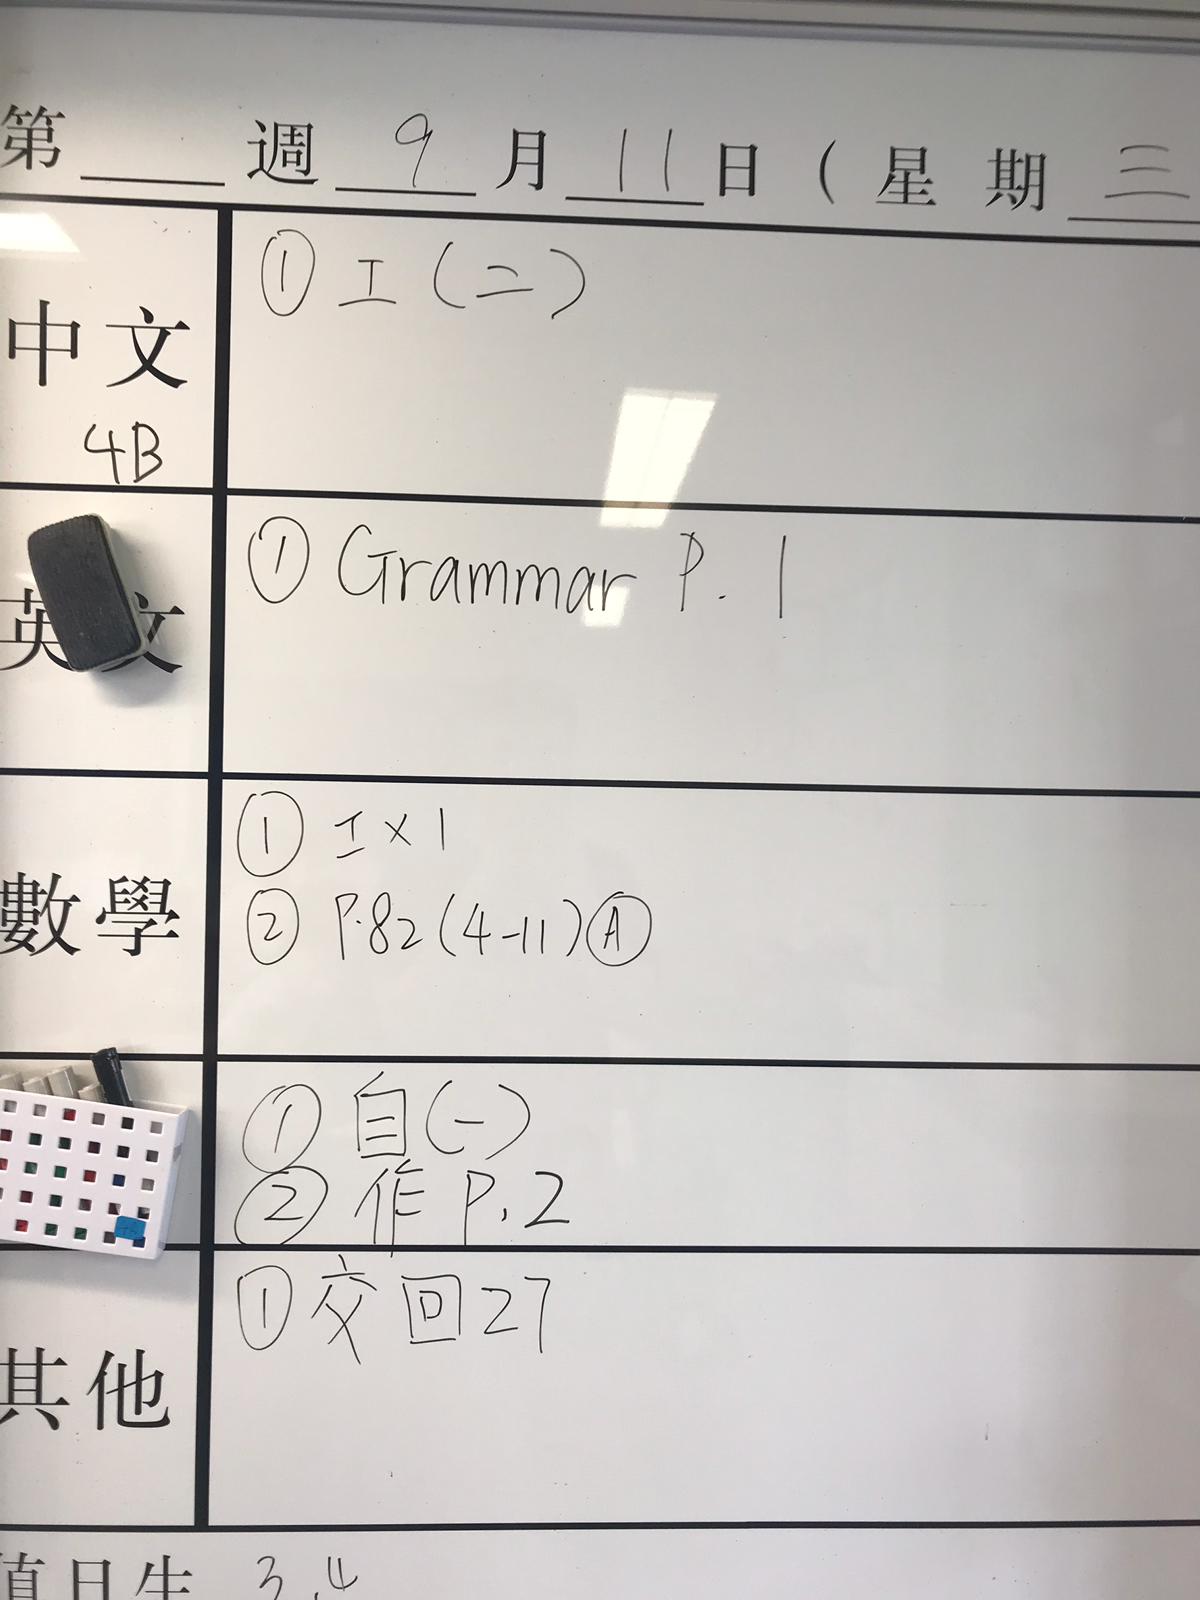 第 週 9 月 11 日 ( 星 期 三
中文
① 工(二)
4B
英文
① Grammar P.1
數學
① 工×1
② P.82(4-11)Ⓐ
① 自(一)
② 作 P.2
其他
① 交回27
值日生 3,4